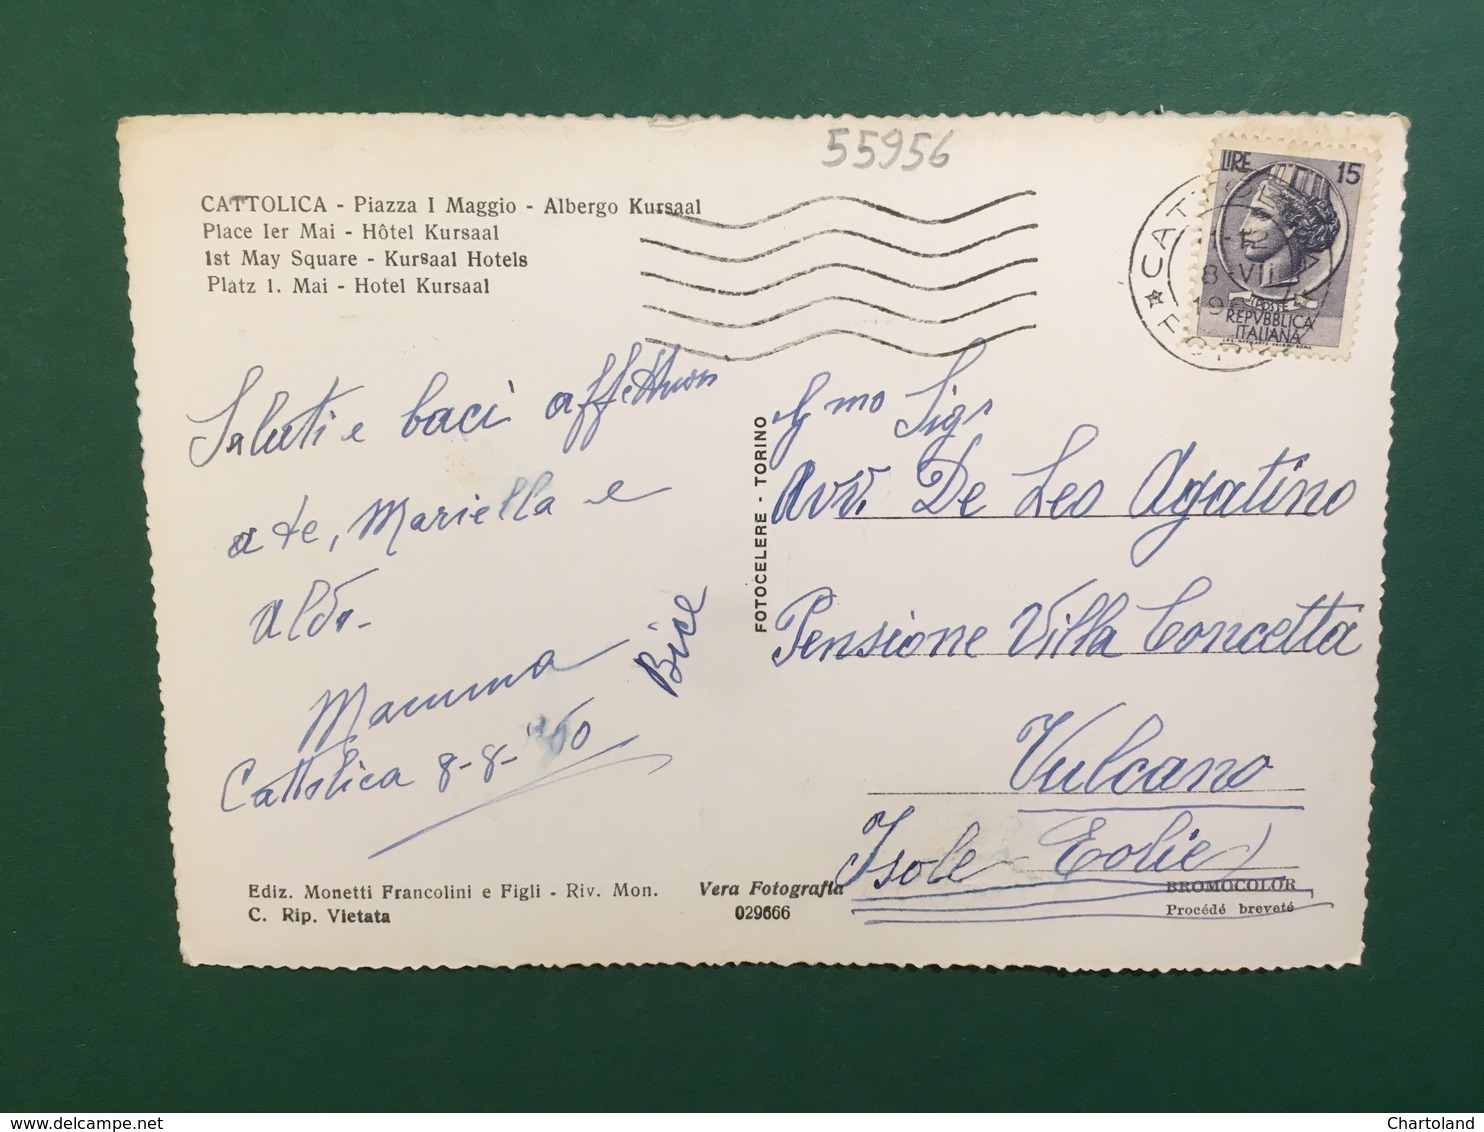 55956
CATTOLICA - Piazza I Maggio - Albergo Kursaal
Place Ier Mai - Hôtel Kursaal
1st May Square - Kursaal Hotels
Platz 1. Mai - Hotel Kursaal
LIRE 15
POSTE
REPVBBLICA
ITALIANA
Saluti e baci affettuosi
a te, Mariella e
Aldo.
Mamma
Bice
Cattolica 8-8-'60
FOTOCELERE - TORINO
Sigr
Avv. De Leo Agatino
Pensione Villa Concetta
Vulcano
Isole Eolie
Ediz. Monetti Francolini e Figli - Riv. Mon.
C. Rip. Vietata
Vera Fotografia
029666
BROMOCOLOR
Procédé breveté
Chartoland
www.delcampe.net